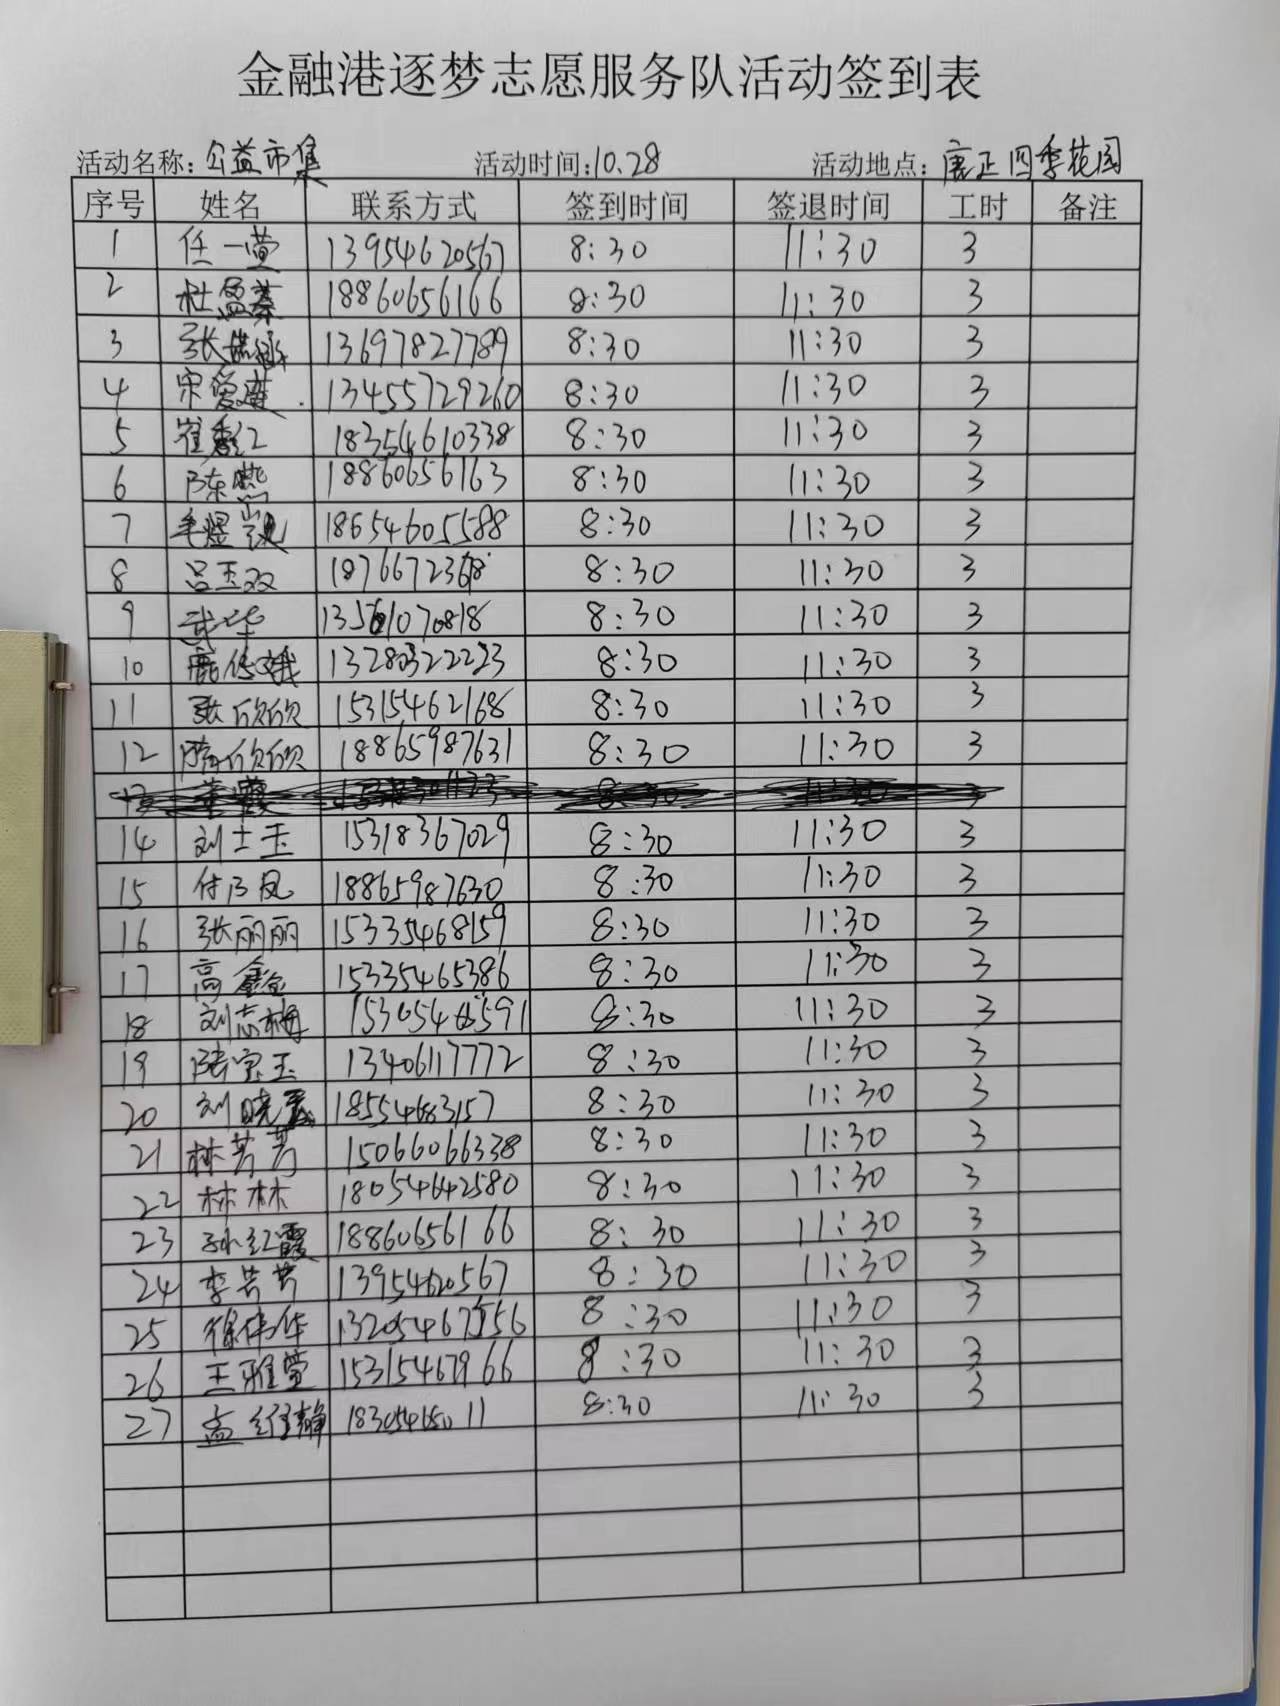 金融港逐梦志愿服务队活动签到表
活动名称:公益市集 活动时间:10.28 活动地点:唐正四季花园
序号 姓名 联系方式 签到时间 签退时间 工时 备注
1 任一萱 13954620567 8:30 11:30 3
2 杜盈蓁 18860656166 8:30 11:30 3
3 张 13697827789 8:30 11:30 3
4 宋爱莲 13455729260 8:30 11:30 3
5 崔红 18354610338 8:30 11:30 3
6 陈燕 18860656163 8:30 11:30 3
7 毛煜 18654605588 8:30 11:30 3
8 吕玉双 8:30 11:30 3
9 武华 13561070818 8:30 11:30 3
10 鹿传娥 13280322223 8:30 11:30 3
11 张欣欣 15315462168 8:30 11:30 3
12 隋欣欣 18865987631 8:30 11:30 3
14 刘士玉 15318367029 8:30 11:30 3
15 付乃凤 18865987630 8:30 11:30 3
16 张丽丽 15335468159 8:30 11:30 3
17 高鑫 15335465386 8:30 11:30 3
18 刘志梅 8:30 11:30 3
19 陆宝玉 13406117772 8:30 11:30 3
20 刘晓 18554683157 8:30 11:30 3
21 林芳芳 15066066338 8:30 11:30 3
22 林林 18054642580 8:30 11:30 3
23 孙红霞 18860656166 8:30 11:30 3
24 李芳芳 13954620567 8:30 11:30 3
25 徐伟华 13205467556 8:30 11:30 3
26 王雅萱 15315467966 8:30 11:30 3
27 孟红静 8:30 11:30 3